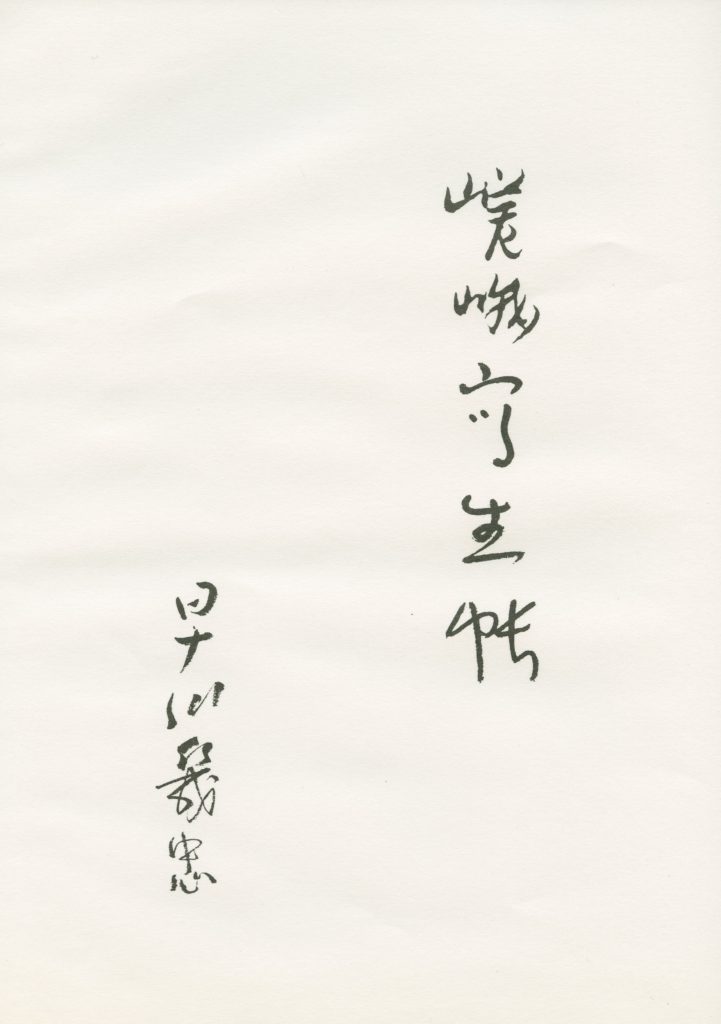 嵯峨写生帖
早川幾忠